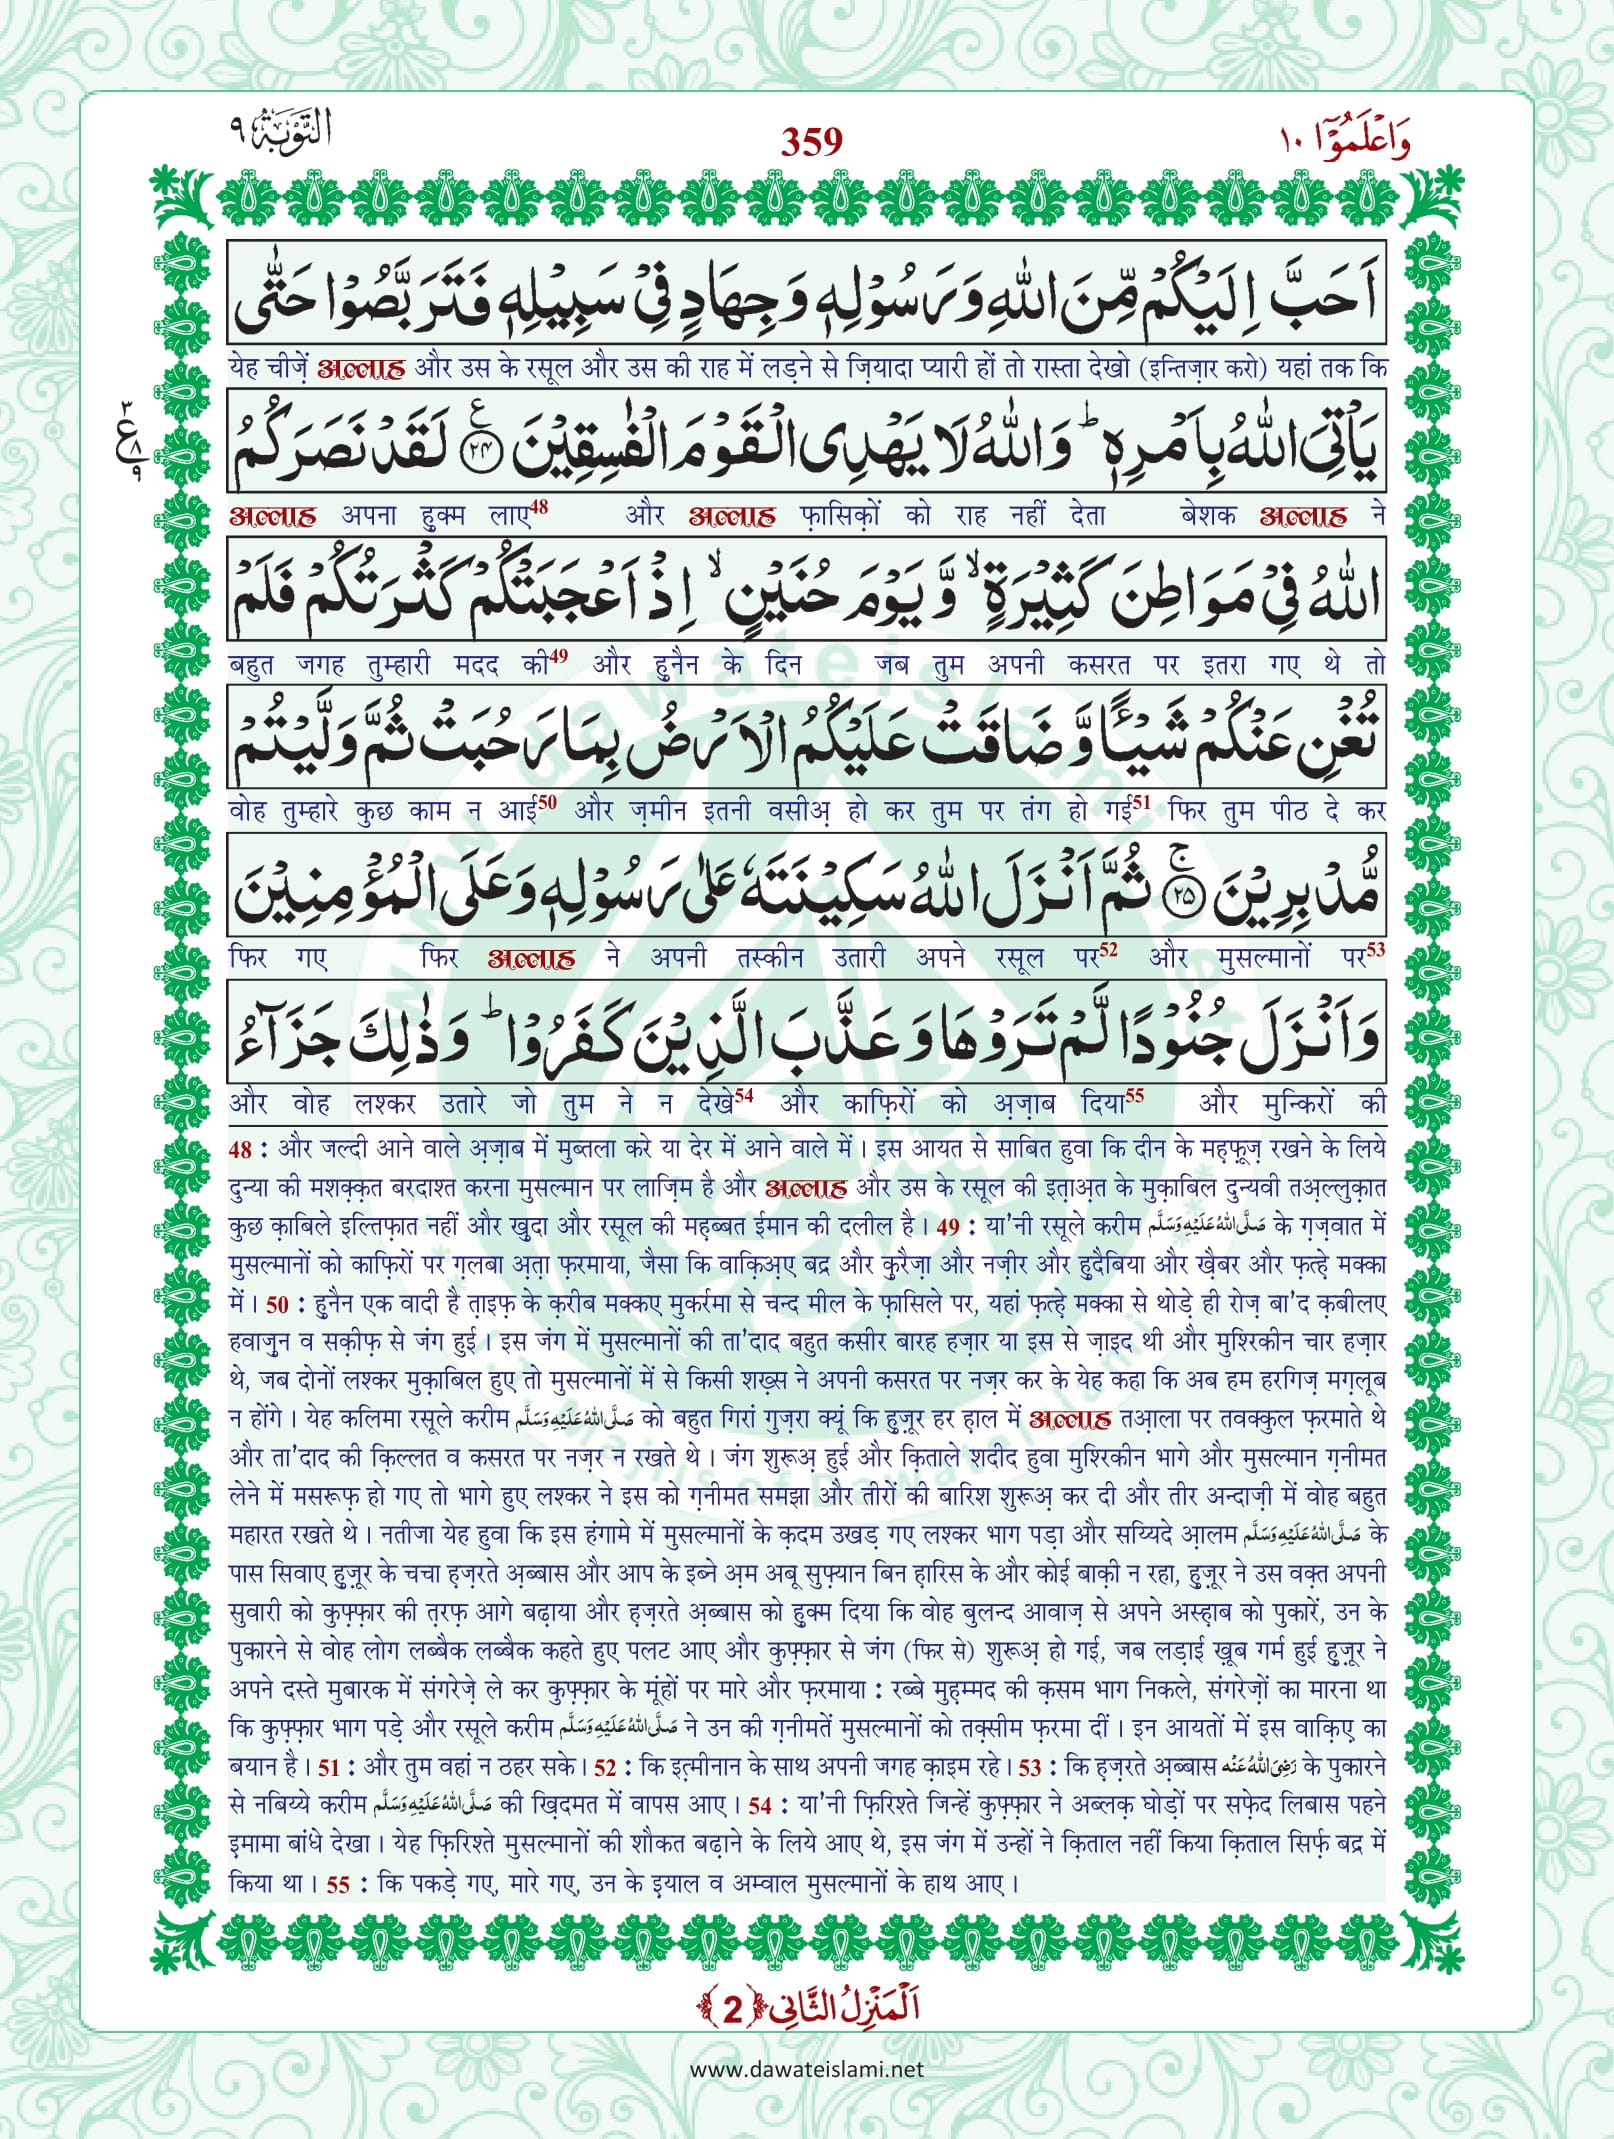 وَاعْلَمُوْۤا ١٠
359
التَّوْبَة ٩
اَحَبَّ اِلَیْكُمْ مِّنَ اللّٰهِ وَ رَسُوْلِهٖ وَ جِهَادٍ فِیْ سَبِیْلِهٖ فَتَرَبَّصُوْا حَتّٰى
येह चीज़ें अल्लाह और उस के रसूल और उस की राह में लड़ने से ज़ियादा प्यारी हों तो रास्ता देखो (इन्तिज़ार करो) यहां तक कि
یَاْتِیَ اللّٰهُ بِاَمْرِهٖؕ وَ اللّٰهُ لَا یَهْدِی الْقَوْمَ الْفٰسِقِیْنَ ۠﴿۲۴﴾ لَقَدْ نَصَرَكُمُ
٣ ع ٨ ٩
अल्लाह अपना हुक्म लाए48 और अल्लाह फ़ासिक़ों को राह नहीं देता बेशक अल्लाह ने
اللّٰهُ فِیْ مَوَاطِنَ كَثِیْرَةٍۙ وَّ یَوْمَ حُنَیْنٍۙ اِذْ اَعْجَبَتْكُمْ كَثْرَتُكُمْ فَلَمْ
बहुत जगह तुम्हारी मदद की49 और हुनैन के दिन जब तुम अपनी कसरत पर इतरा गए थे तो
تُغْنِ عَنْكُمْ شَیْــٴًـا وَّ ضَاقَتْ عَلَیْكُمُ الْاَرْضُ بِمَا رَحُبَتْ ثُمَّ وَلَّیْتُمْ
वोह तुम्हारे कुछ काम न आई50 और ज़मीन इतनी वसीअ़ हो कर तुम पर तंग हो गई51 फिर तुम पीठ दे कर
مُّدْبِرِیْنَ ۚ﴿۲۵﴾ ثُمَّ اَنْزَلَ اللّٰهُ سَكِیْنَتَهٗ عَلٰى رَسُوْلِهٖ وَ عَلَى الْمُؤْمِنِیْنَ
फिर गए फिर अल्लाह ने अपनी तस्कीन उतारी अपने रसूल पर52 और मुसल्मानों पर53
وَ اَنْزَلَ جُنُوْدًا لَّمْ تَرَوْهَا وَ عَذَّبَ الَّذِیْنَ كَفَرُوْاؕ وَ ذٰلِكَ جَزَآءُ
और वोह लश्कर उतारे जो तुम ने न देखे54 और काफ़िरों को अ़ज़ाब दिया55 और मुन्किरों की
48 : और जल्दी आने वाले अ़ज़ाब में मुब्तला करे या देर में आने वाले में। इस आयत से साबित हुवा कि दीन के मह़फ़ूज़ रखने के लिये
दुन्या की मशक़्क़त बरदाश्त करना मुसल्मान पर लाज़िम है और अल्लाह और उस के रसूल की इत़ाअ़त के मुक़ाबिल दुन्यवी तअ़ल्लुक़ात
कुछ क़ाबिले इल्तिफ़ात नहीं और ख़ुदा और रसूल की मह़ब्बत ईमान की दलील है। 49 : या'नी रसूले करीम صَلَّی اللّٰهُ عَلَیْهِ وَسَلَّم के ग़ज़वात में
मुसल्मानों को काफ़िरों पर ग़लबा अ़त़ा फ़रमाया, जैसा कि वाक़िअ़ए बद्र और कुरैज़ा और नज़ीर और हुदैबिया और ख़ैबर और फ़त्ह़े मक्का
में। 50 : हुनैन एक वादी है त़ाइफ़ के क़रीब मक्कए मुकर्रमा से चन्द मील के फ़ासिले पर, यहां फ़त्ह़े मक्का से थोड़े ही रोज़ बा'द क़बीलए
हवाज़ुन व सक़ीफ़ से जंग हुई। इस जंग में मुसल्मानों की ता'दाद बहुत कसीर बारह हज़ार या इस से ज़ाइद थी और मुश्रिकीन चार हज़ार
थे, जब दोनों लश्कर मुक़ाबिल हुए तो मुसल्मानों में से किसी शख़्स ने अपनी कसरत पर नज़र कर के येह कहा कि अब हम हरगिज़ मग़्लूब
न होंगे। येह कलिमा रसूले करीम صَلَّی اللّٰهُ عَلَیْهِ وَسَلَّم को बहुत गिरां गुज़रा क्यूं कि हुज़ूर हर ह़ाल में अल्लाह तआ़ला पर तवक्कुल फ़रमाते थे
और ता'दाद की क़िल्लत व कसरत पर नज़र न रखते थे। जंग शुरूअ़ हुई और क़िताले शदीद हुवा मुश्रिकीन भागे और मुसल्मान ग़नीमत
लेने में मसरूफ़ हो गए तो भागे हुए लश्कर ने इस को ग़नीमत समझा और तीरों की बारिश शुरूअ़ कर दी और तीर अन्दाज़ी में वोह बहुत
महारत रखते थे। नतीजा येह हुवा कि इस हंगामे में मुसल्मानों के क़दम उखड़ गए लश्कर भाग पड़ा और सय्यिदे आ़लम صَلَّی اللّٰهُ عَلَیْهِ وَسَلَّم के
पास सिवाए हुज़ूर के चचा ह़ज़रते अ़ब्बास और आप के इब्ने अ़म अबू सुफ़्यान बिन ह़ारिस के और कोई बाक़ी न रहा, हुज़ूर ने उस वक़्त अपनी
सुवारी को कुफ़्फ़ार की त़रफ़ आगे बढ़ाया और ह़ज़रते अ़ब्बास को हुक्म दिया कि वोह बुलन्द आवाज़ से अपने अस्ह़ाब को पुकारें, उन के
पुकारने से वोह लोग लब्बैक लब्बैक कहते हुए पलट आए और कुफ़्फ़ार से जंग (फिर से) शुरूअ़ हो गई, जब लड़ाई ख़ूब गर्म हुई हुज़ूर ने
अपने दस्ते मुबारक में संगरेज़े ले कर कुफ़्फ़ार के मूंहों पर मारे और फ़रमाया : रब्बे मुह़म्मद की क़सम भाग निकले, संगरेज़ों का मारना था
कि कुफ़्फ़ार भाग पड़े और रसूले करीम صَلَّی اللّٰهُ عَلَیْهِ وَسَلَّم ने उन की ग़नीमतें मुसल्मानों को तक़्सीम फ़रमा दीं। इन आयतों में इस वाक़िए का
बयान है। 51 : और तुम वहां न ठहर सके। 52 : कि इत़्मीनान के साथ अपनी जगह क़ाइम रहे। 53 : कि ह़ज़रते अ़ब्बास رَضِیَ اللّٰهُ عَنْه के पुकारने
से नबिय्ये करीम صَلَّی اللّٰهُ عَلَیْهِ وَسَلَّم की ख़िदमत में वापस आए। 54 : या'नी फ़िरिश्ते जिन्हें कुफ़्फ़ार ने अब्लक़ घोड़ों पर सफ़ेद लिबास पहने
इमामा बांधे देखा। येह फ़िरिश्ते मुसल्मानों की शौकत बढ़ाने के लिये आए थे, इस जंग में उन्हों ने क़िताल नहीं किया क़िताल सिर्फ़ बद्र में
किया था। 55 : कि पकड़े गए, मारे गए, उन के इ़याल व अम्वाल मुसल्मानों के हाथ आए।
اَلْمَنْزِلُ الثَّانِی ﴿2﴾
www.dawateislami.net